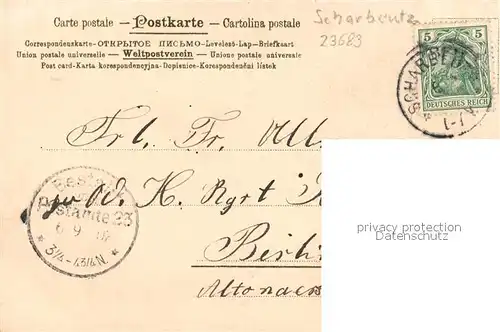 Carte postale – Postkarte – Cartolina postale
Correspondenzkarte–ОТКРЫТОЕ ПИСЬМО–Levelező-Lap–Briefkaart
Union postale universelle – Weltpostverein – Unione postale universale
Post card–Karta korespondencyjna–Dopisnice–Korespondenční lístek
Scharbeutz
23683
5 5
DEUTSCHES REICH
SCHARBEU
1-7
Frl. Fr.
W. H.
Berlin
Altonaer
Bestellt
Postamte 23
6 9
* 3¼-4¾N. *
privacy protection
Datenschutz